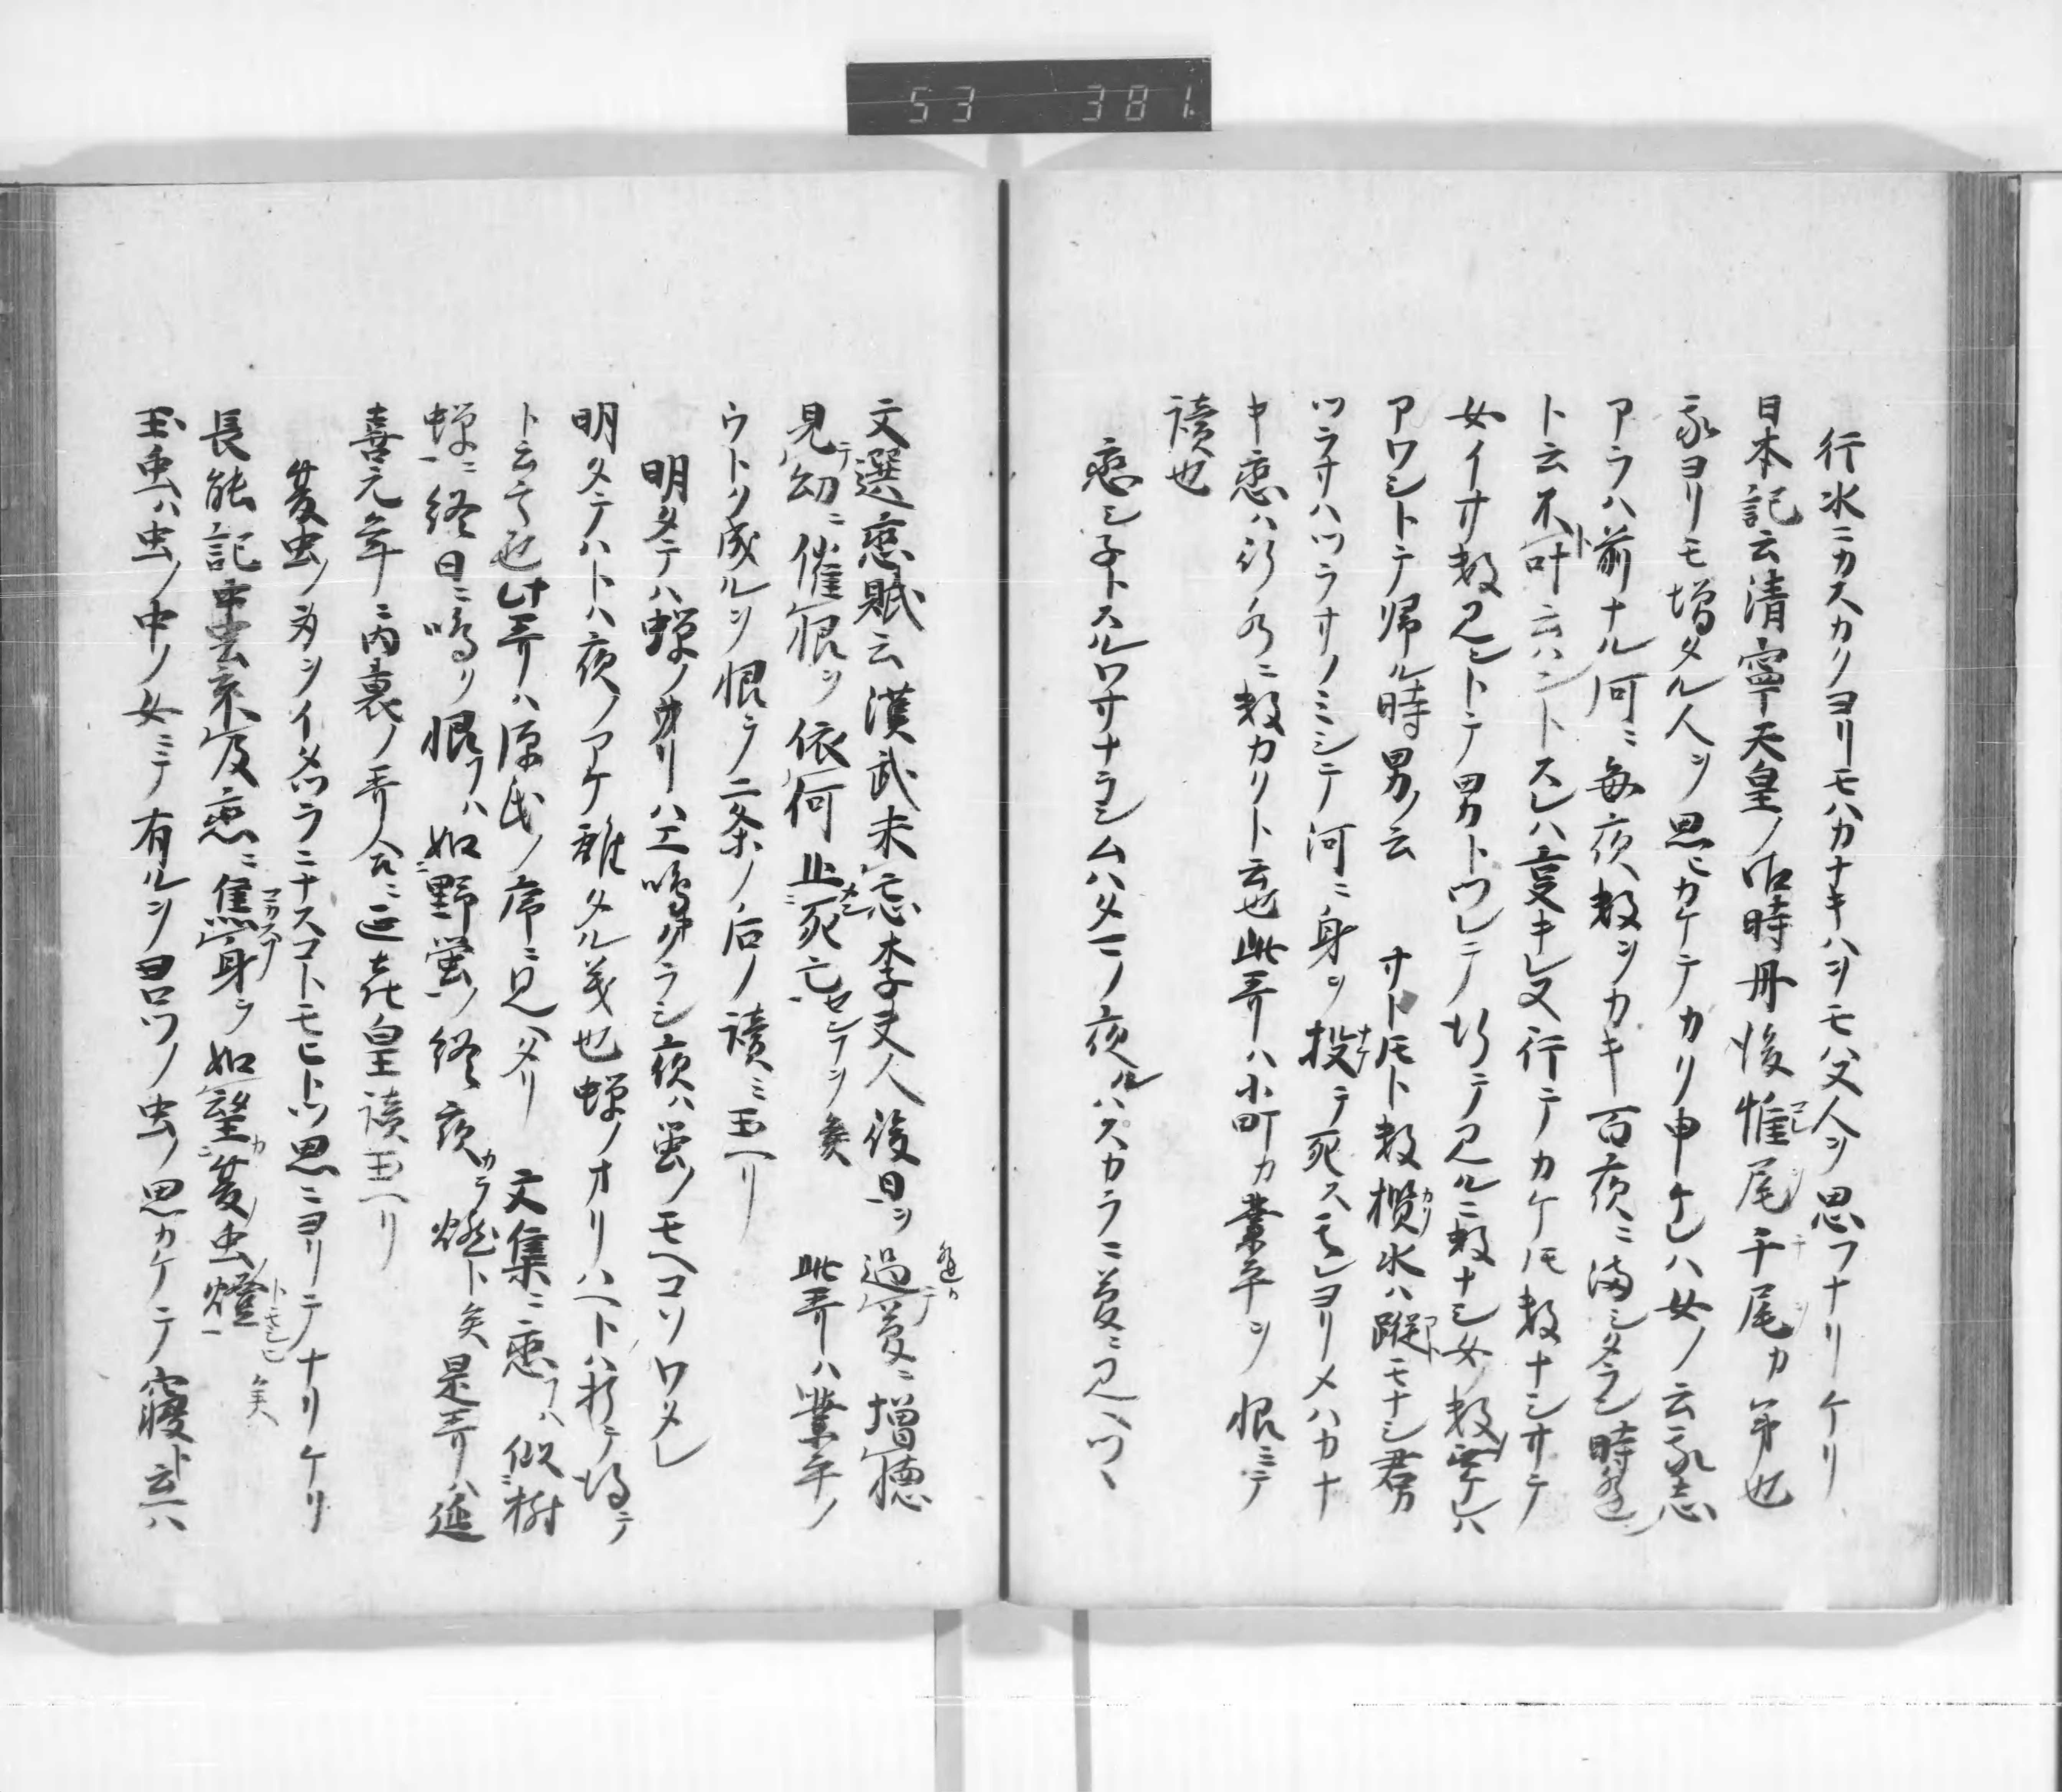 53 381
行水ニカスカクヨリモハカナキハヲモハヌ人ヲ思フナリケリ
日本記云清寧天皇ノ御時丹後惟尾千尾カ弟也
我ヨリモ増タル人ヲ思ニカケテカリ申ケレハ女ノ云我志
アラハ前ナル河ニ毎夜数ヲカキ百夜ニ満シタラン時逢
ト云不叶云ハントスレハ安キ又行テカケトモ数ナシサテ
女イサ数見ントテ男トツレテ行テ見ルニ数ナシ女数無レハ
アワシトテ帰ル時男ノ云 サトモト数撹水ハ蹤モナシ君カ
ツラサハツラサノミシテ河ニ身ヲ投テ死スモレヨリメハカナ
キ恋ハ行水ニ数カクト云也此哥ハ小町カ業平ヲ恨ミテ
読也
恋シ子トスルワサナラシムハタマノ夜ルハスカラニ夢ニ見ヘツヽ
文選恋賦云漢武未忘李夫人後日ヲ過夢ニ増聴
見幻ニ催恨ヲ依何止死亡センヲ矣 此哥ハ業平ノ
ウトク成ルヲ恨テ二条ノ后ノ読ミ玉ヘリ
明タテハ蝉ノオリハエ鳴クラシ夜ハ蛍ノモヘコソワタレ
明タテハトハ夜ノアケ離タル義也蝉ノオリハヘトハ折テ鳴テ
ト云云也此哥ハ源氏ノ席ニ見ヘタリ 文集ニ恋フハ似樹
蝉ニ終日ニ鳴リ恨フハ如野蛍ノ終夜カラ燃ト矣是哥ハ延
喜元年ニ内裏ノ哥合ニ延喜皇読玉ヘリ
夏虫ノ身ヲイタツラニナスコトモヒトツ思ニヨリテナリケリ
長能記中云京及恋ニ焦身ヲ如望夏虫燈矣
玉虫ハ虫ノ中ノ女ニテ有ルヲヨロツノ虫ノ思カケテ寝ト云ハ